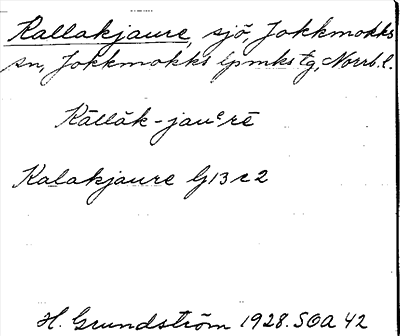 Kallakjaure, sjö, Jokkmokks
sn, Jokkmokks lpmks tg, Norrb. l.
Kāllāk-jauᵉrē
Kalakjaure G13 r 2
H. Grundström 1928. SOA 42